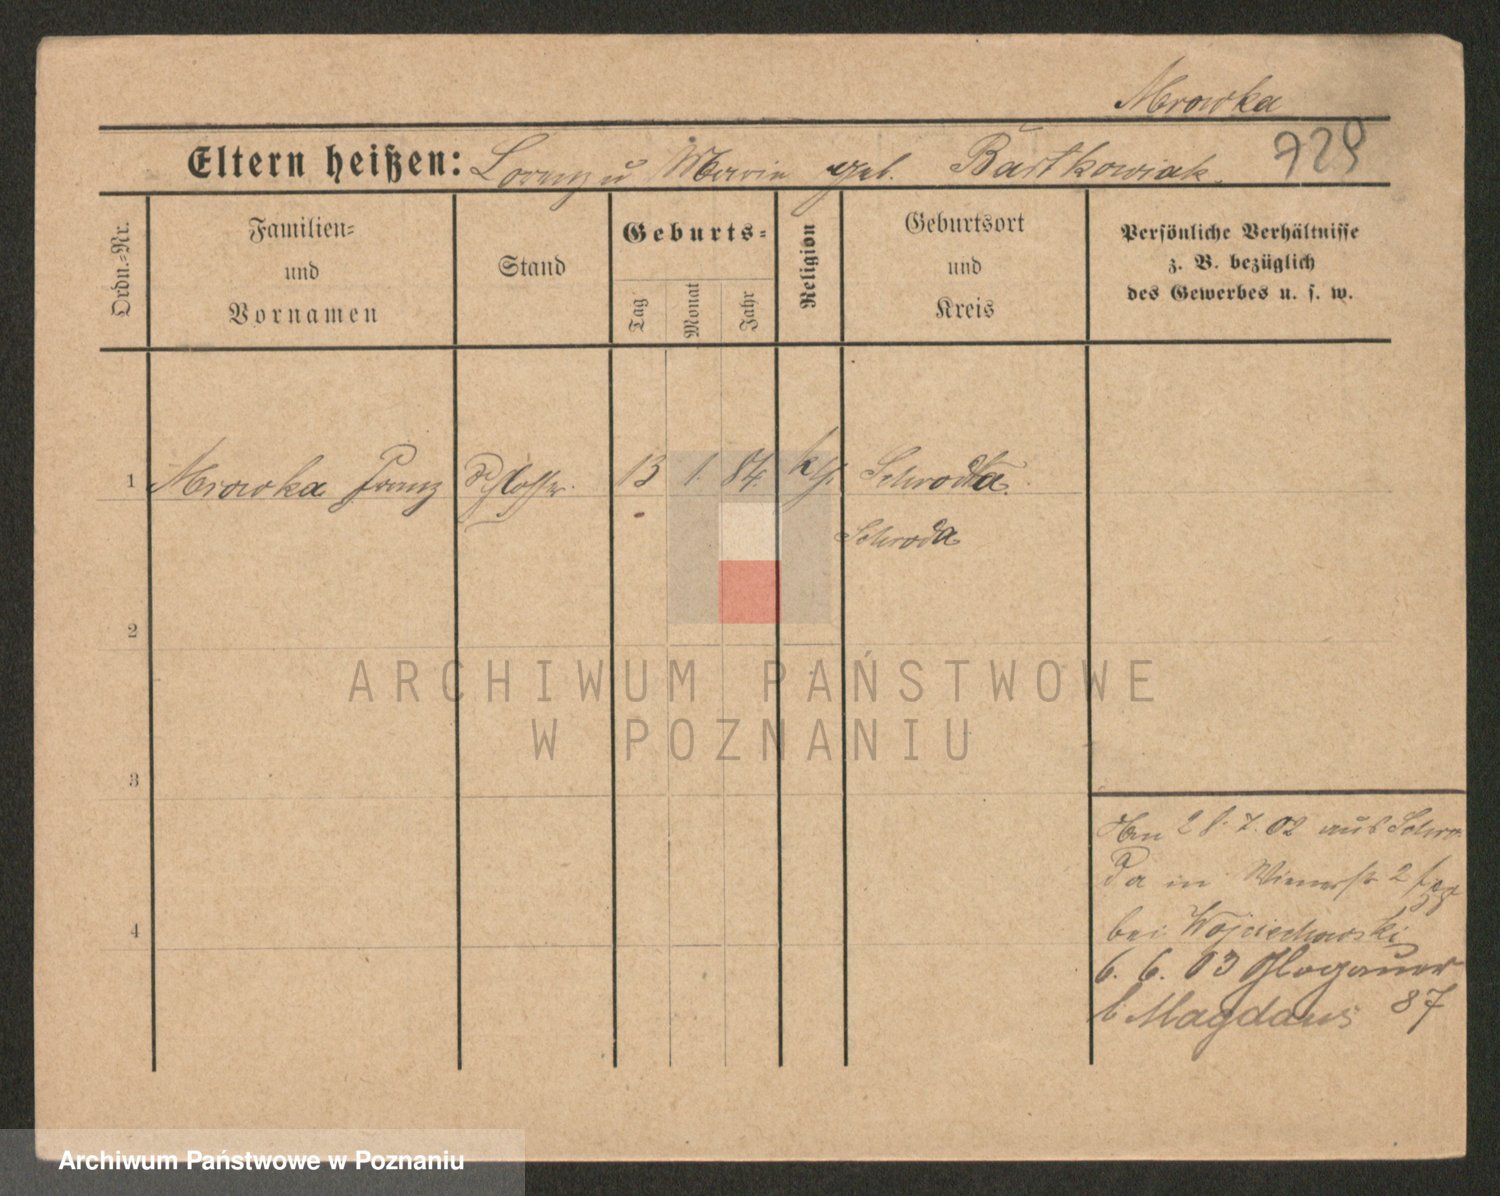 Mrowka
Eltern heißen: Lorenz u Marie geb. Bartkowiak
729
Ordn.-Nr.
Familien-
und
Vornamen
Stand
Geburts-
Tag
Monat
Jahr
Religion
Geburtsort
und
Kreis
Persönliche Verhältnisse
z. B. bezüglich
des Gewerbes u. s. w.
1 Mrowka Franz Schlosser 13 1. 84. kth. Schrodka
Schroda
2
3
4
28.7.02 aus Schro-
da in Wienerstr 2
bei Wojciechowski
6. 6. 03 Glogauer
b Magdans 87
ARCHIWUM PAŃSTWOWE
W POZNANIU
Archiwum Państwowe w Poznaniu